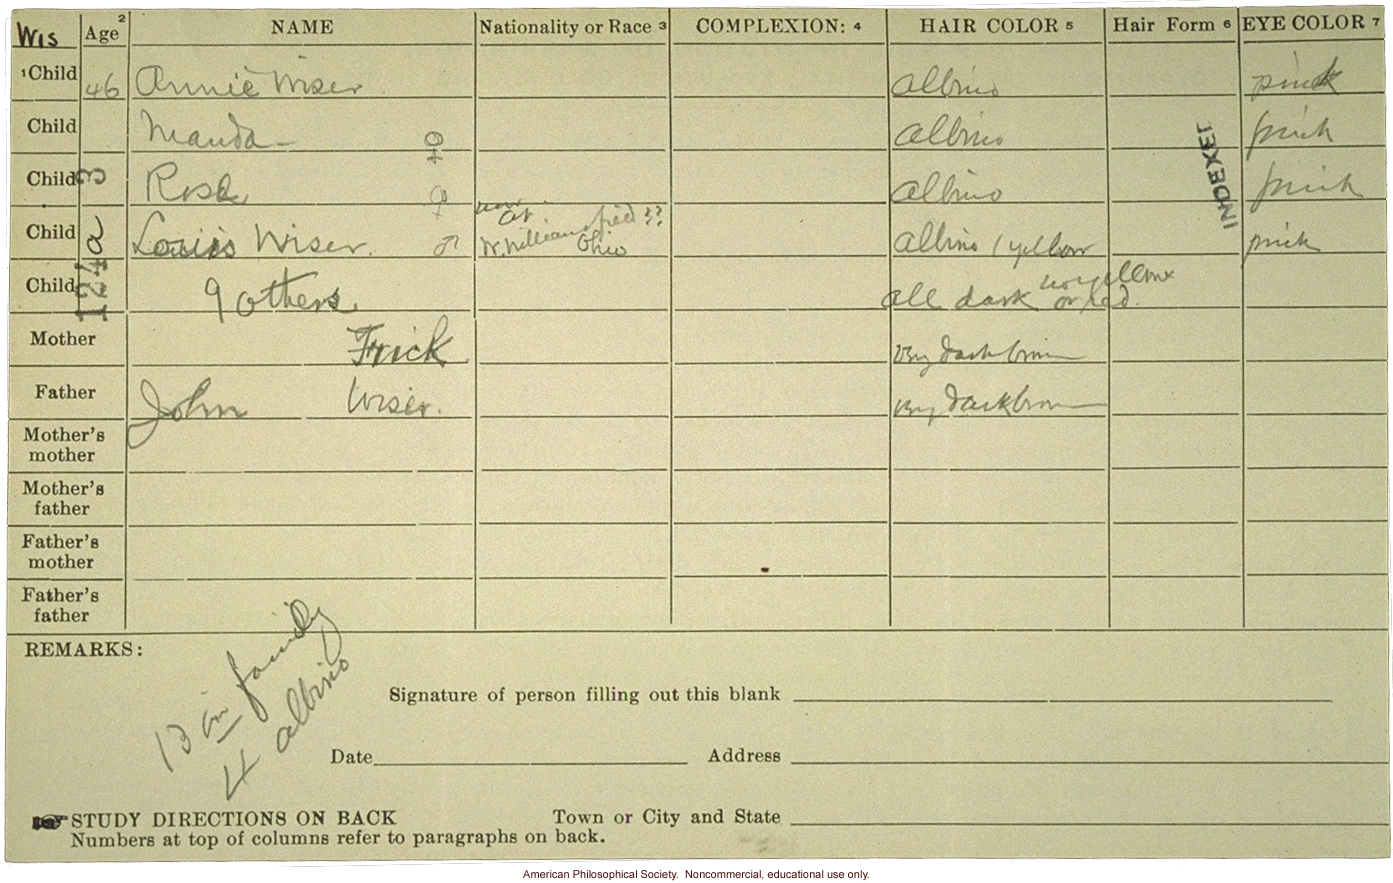 Wis Age 2 NAME Nationality or Race 3 COMPLEXION: 4 HAIR COLOR 5 Hair Form 6 EYE COLOR 7
1 Child 46 Annie Wiser albino pink
Child Manda - ♀ albino pink
Child Rose ♀ albino pink
Child Louis Wiser. ♂ now at W. Williamsfield ?? Ohio albino / yellow pink
Child 9 others all dark no yellow or red.
124a3
INDEXED
Mother Frick very dark brown
Father John Wiser. very dark brown
Mother's mother
Mother's father
Father's mother
Father's father
REMARKS:
13 in family
4 albino
Signature of person filling out this blank
Date Address
STUDY DIRECTIONS ON BACK Town or City and State
Numbers at top of columns refer to paragraphs on back.
American Philosophical Society. Noncommercial, educational use only.